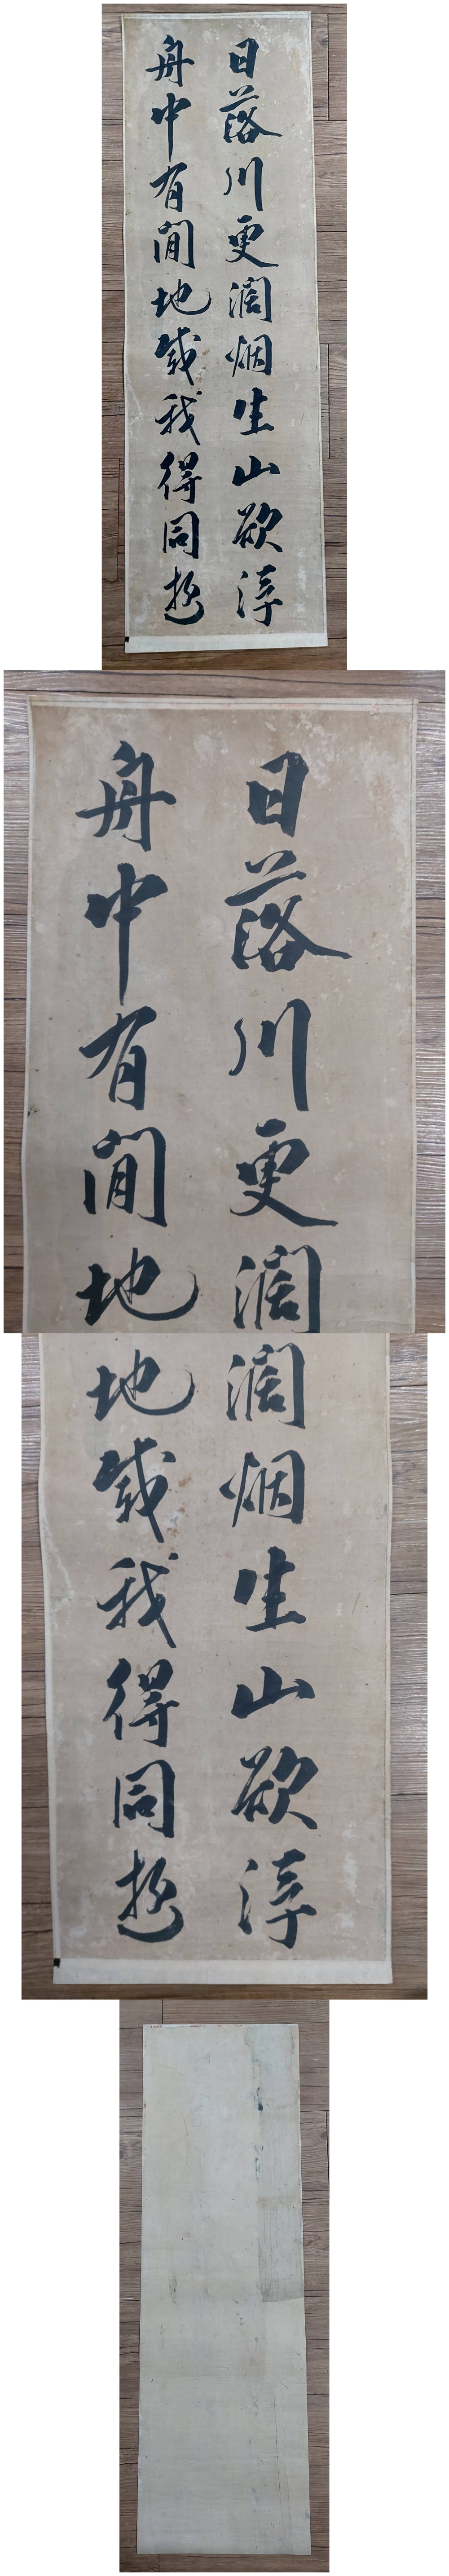 日落川更濶烟生山欲浮
舟中有閒地載我得同遊
日落川更濶
舟中有閒地
濶烟生山欲浮
地載我得同遊